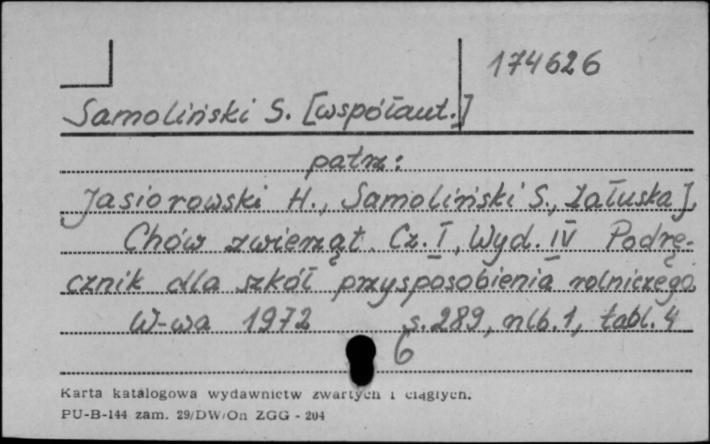 174626
Samoliński S. [współaut.]
patrz:
Jasiorowski H., Samoliński S., Załuska J.
Chów zwierząt. Cz. I, Wyd. IV Podrę-
cznik dla szkół przysposobienia rolniczego
W-wa 1972 s. 289, nlb. 1, tabl. 4
6
Karta katalogowa wydawnictw zwartych i ciągłych.
PU-B-144 zam. 29/DW/On ZGG - 204